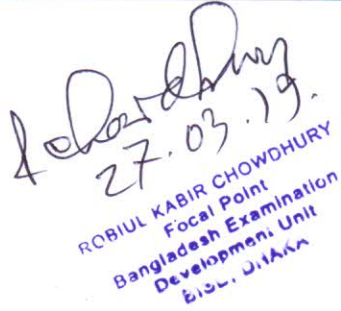 RChowdhury
27.03.19.
ROBIUL KABIR CHOWDHURY
Focal Point
Bangladesh Examination
Development Unit
BISE, DHAKA